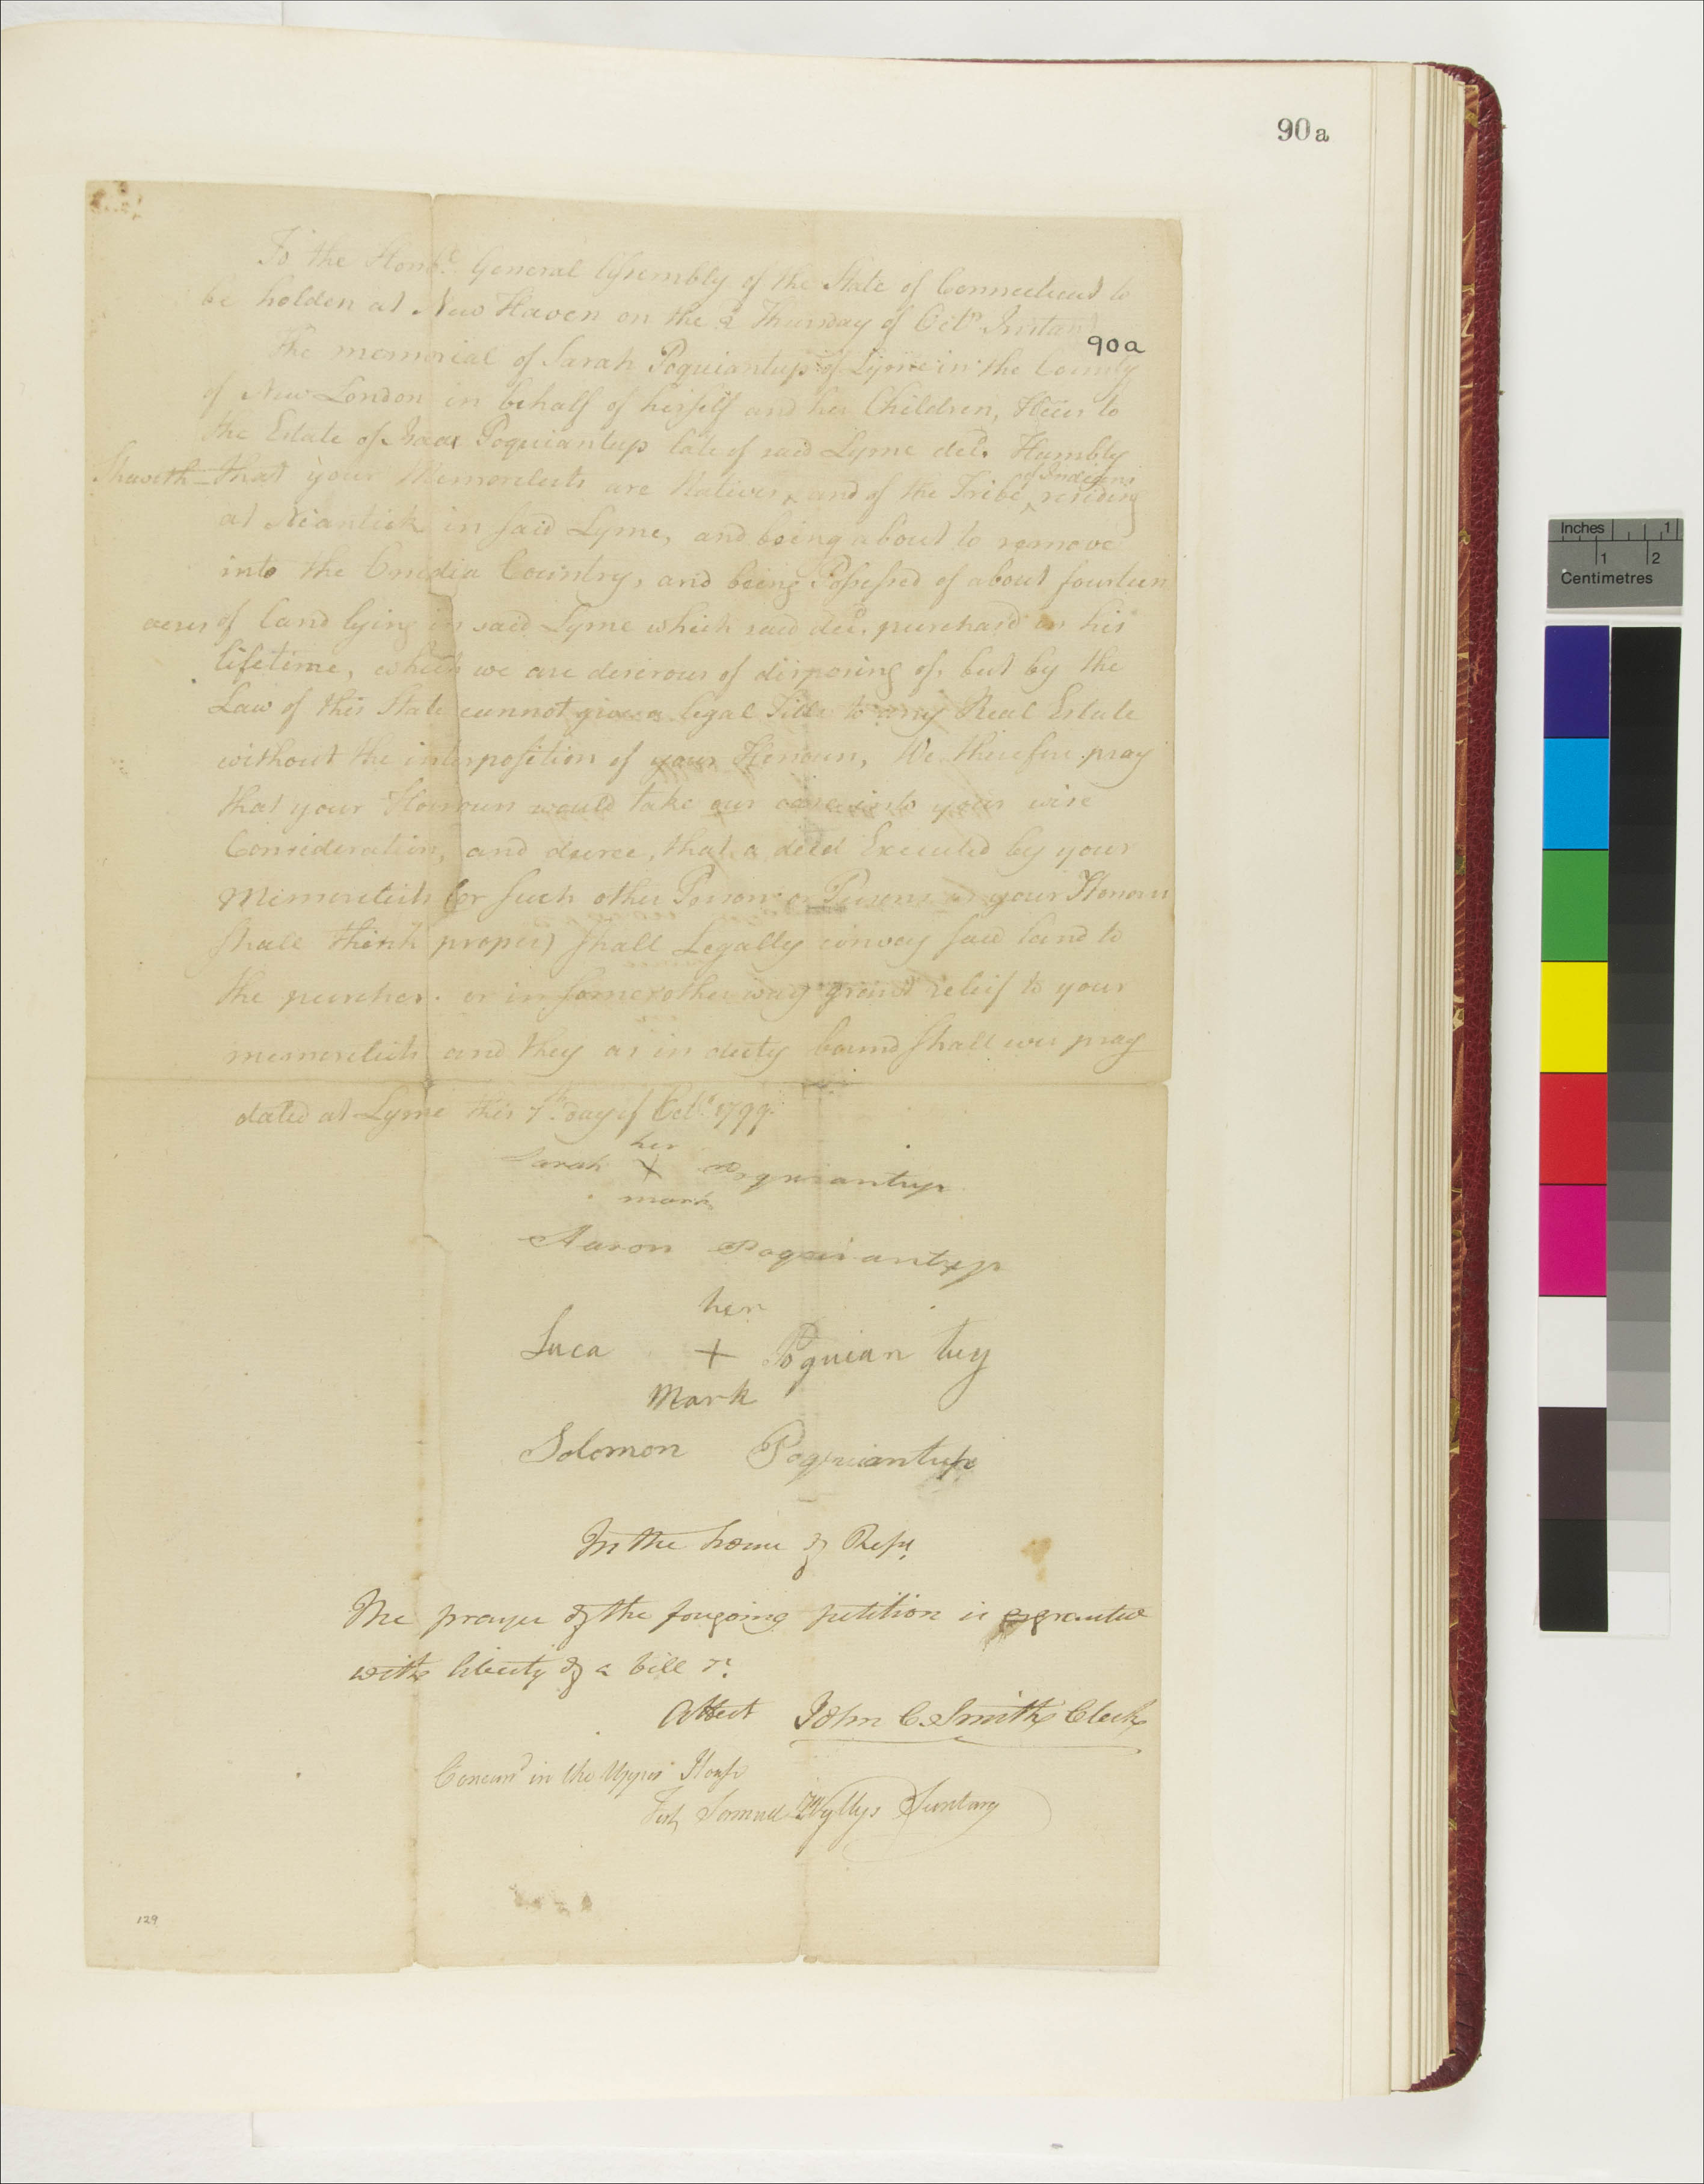 90a
To the Honble General Assembly of the State of Connecticut to
be holden at New Haven on the 2 Thursday of Octr Instant
90a
The memorial of Sarah Poquiantup of Lyme in the County
of New London in behalf of herself and her Children, Heirs to
the Estate of Isaac Poquiantup late of said Lyme decd. Humbly
Sheweth - that your Memorelists are Natives, and of the Tribe ^ of Indigens residing
at Niantick in said Lyme, and being about to remove
into the Onidia Country, and being Possessed of about fourteen
acres of land lying in said Lyme which said decd. purchasd in his
lifetime, which we are desirous of disposing of, but by the
Law of this State cannot give a legal Title to any Real Estate
without the interposition of your Honours, We therefore pray
that your Honours would take our case into your wise
Consideration, and decree, that a deed Executed by your
Memorelists (or such other Person or Persons as your Honours
shall think proper) shall Legally convey said land to
the purcher. or in some other way grant releif to your
memorelists and they as in duty bound shall ever pray
dated at Lyme this 7th day of Octr 1799.
her
Sarah X Poquiantup
mark
Aaron Poquiantup
her
Luca + Poquian tuy
Mark
Solomon Poquiantup
In the house of Reps.
The prayer of the foregoing petition is granted
with liberty of a bill &c.
Attest John C. Smith Clerk
Concurd in the Upper House
Test Samuel Wyllys Secretary
129
Inches 1
1 2
Centimetres